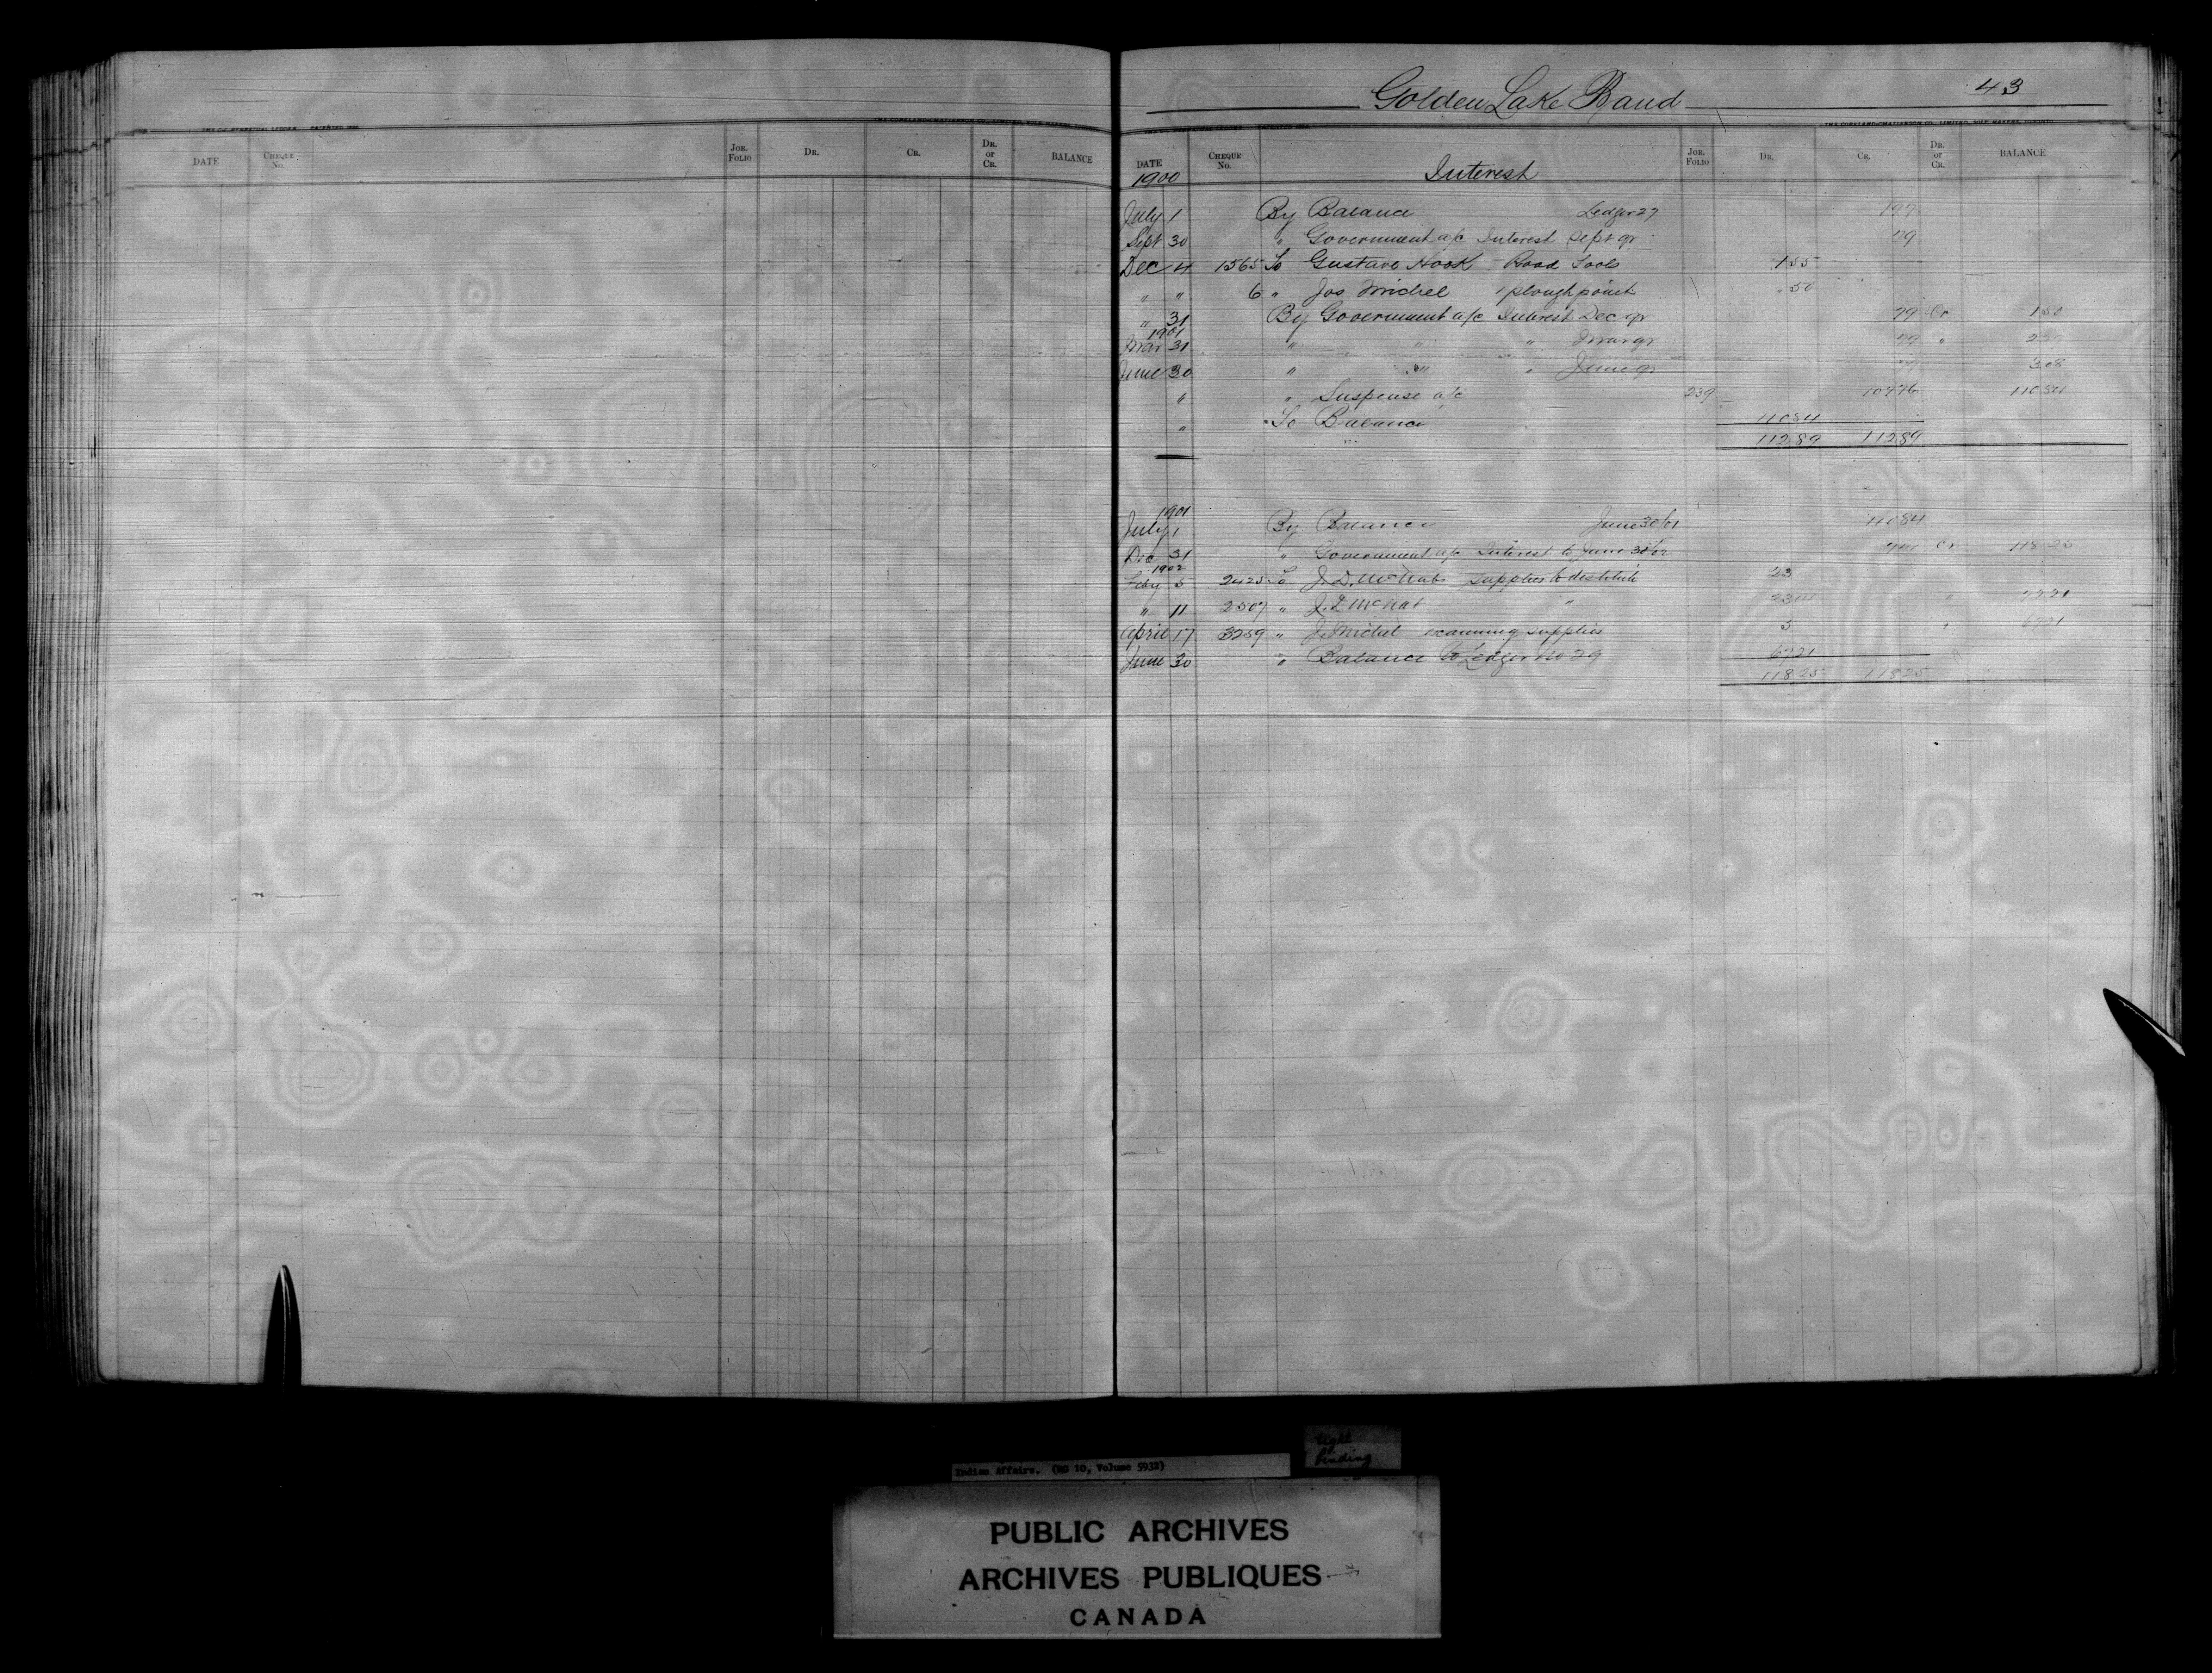 Golden Lake Band 43
DATE CHEQUE No. JOR. FOLIO DR. CR. DR. or CR. BALANCE
DATE CHEQUE No. JOR. FOLIO DR. CR. DR. or CR. BALANCE
1900 Interest
July 1 By Balance Ledger 27 1 97
Sept 30 " Government a/c Interest Sept qr 79
Dec 4 1565 To Gustave Hook Road Tools 1 55
" " 6 " Jos Michel 1 plough point 50
" 31 By Government a/c Interest Dec qr 79 Cr 1 50
1901
Mar 31 " " " Mar qr 79 " 2 29
June 30 " " " June qr 79 3 08
" " Suspense a/c 239 107 76 110 84
" To Balance 110 84
112 89 112 89
1901
July 1 By Balance June 30/01 110 84
Dec 31 " Government a/c Interest to June 30/02 7 41 Cr 118 25
1902
Feby 5 2425 To J. D. McNab supplies to destitute 23
" 11 2507 " J. D. McNab " 23 04 " 72 21
April 17 3259 " J. Michel examining supplies 5 " 67 21
June 30 " Balance to Ledger No 29 67 21
118 25 118 25
Indian Affairs. (RG 10, Volume 5932)
tight
binding
PUBLIC ARCHIVES
ARCHIVES PUBLIQUES
CANADA